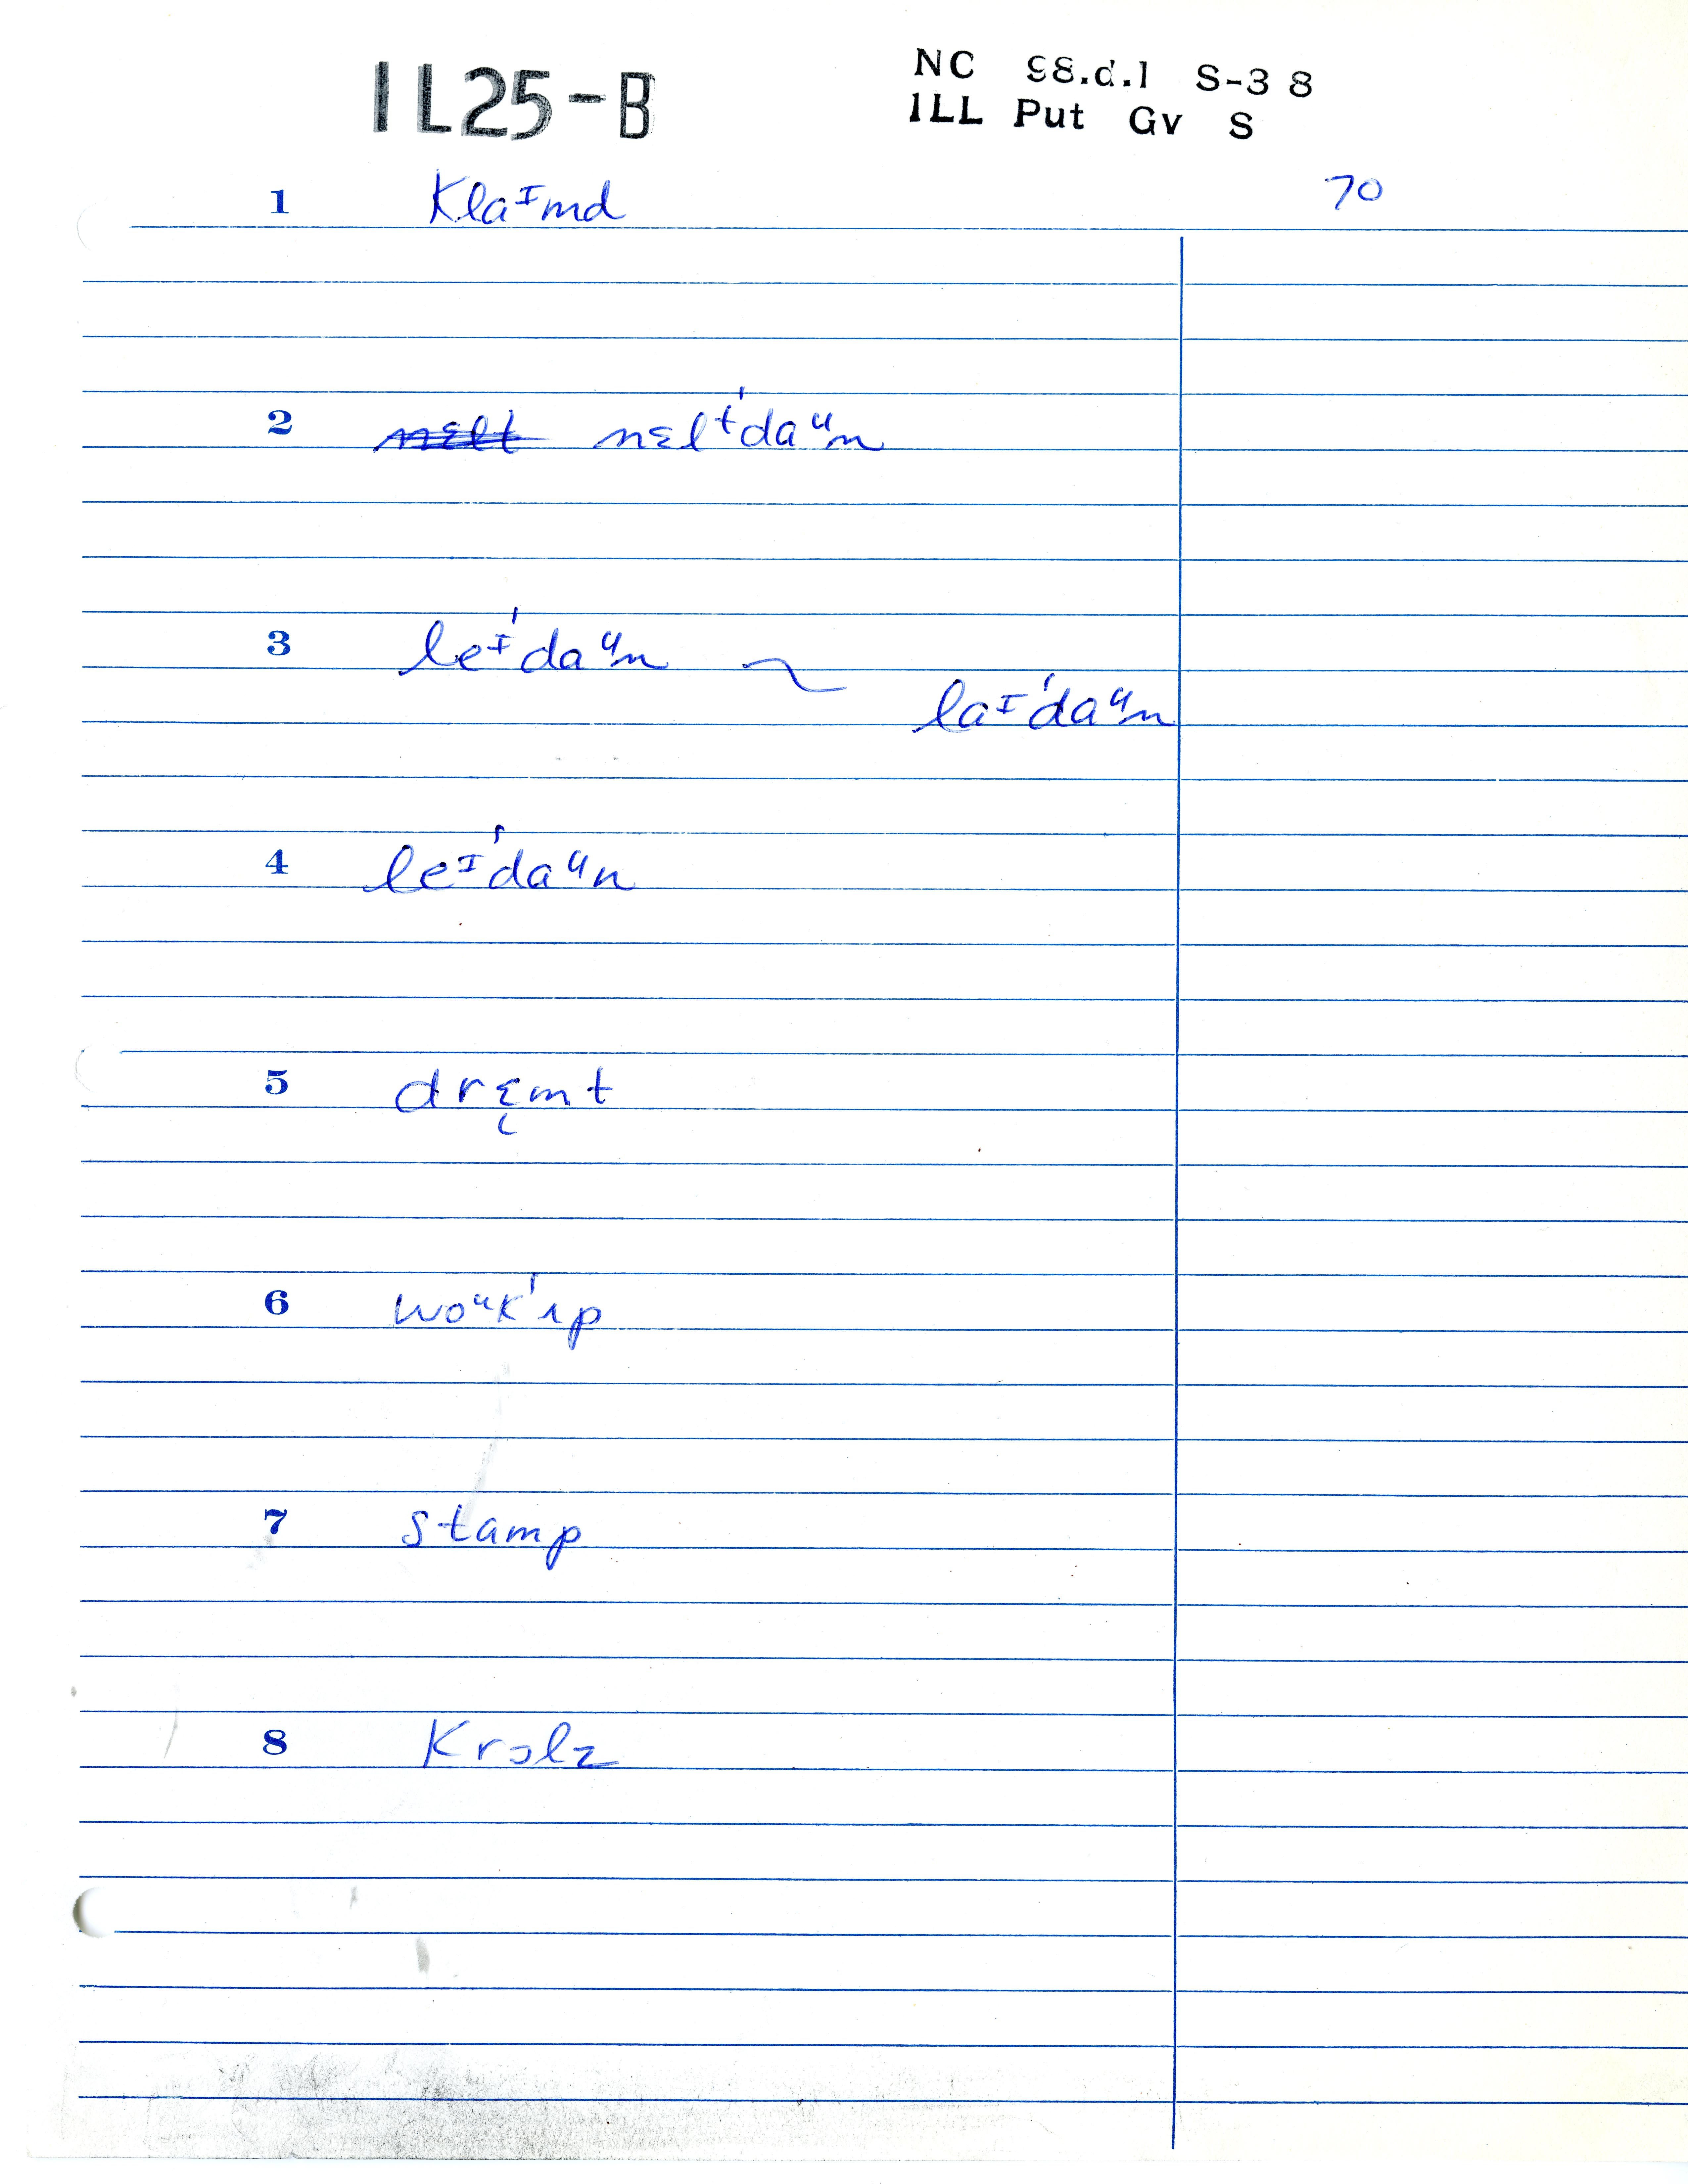 IL25-B
NC 98.d.1 S-38
ILL Put Gv S
70
1 klaᴵmd
2 nɛlt nɛlᵗˈdaᵘn
3 leᴵˈdaᵘn ~
laᴵˈdaᵘn
4 leᴵˈdaᵘn
5 drɛ̜mt
6 woᵘkˈʌp
7 stamp
8 krɔlz